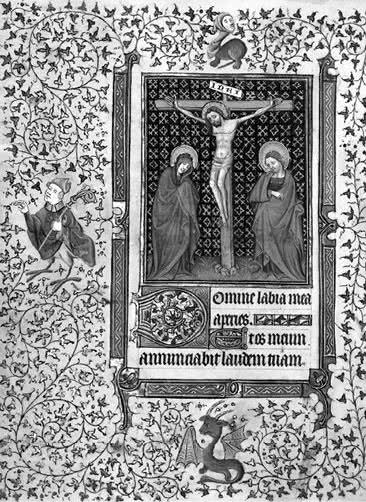 INRI
Domine labia mea
aperies.
Et os meum
annunciabit laudem tuam.